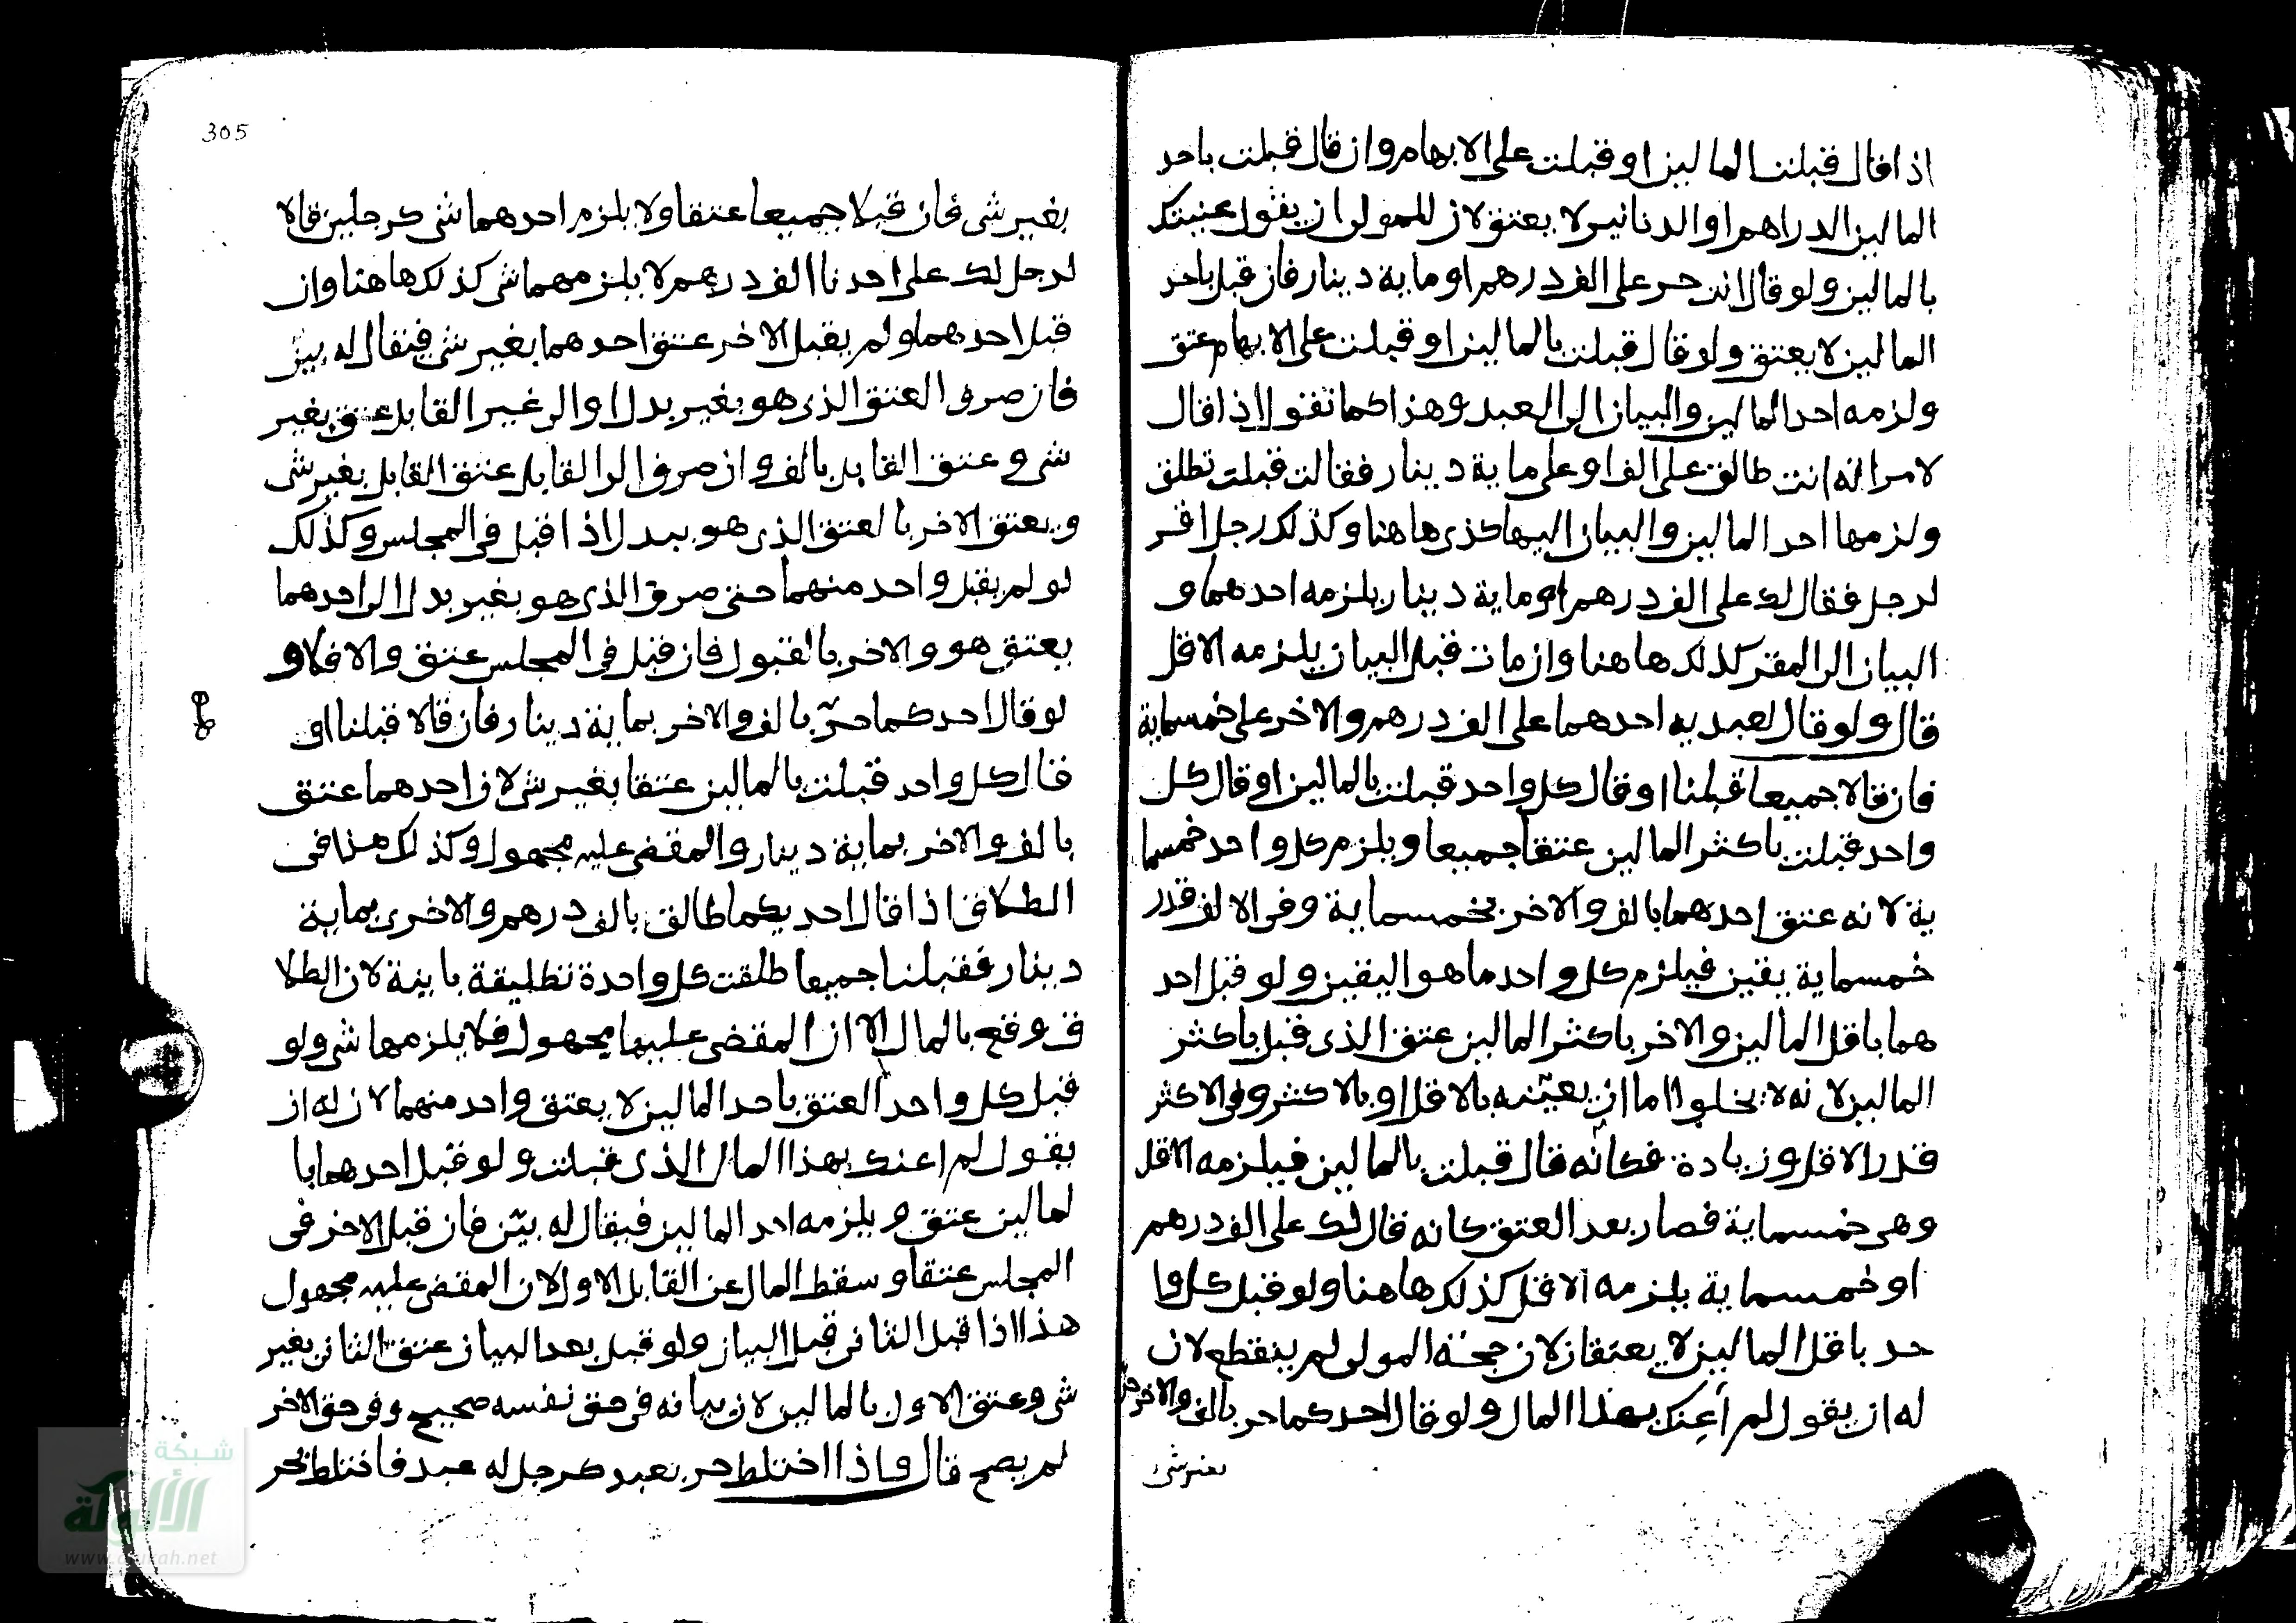 اذا قال قبلت المالين او قبلت على الابهام وان قال قبلت باحد
المالين الدراهم او الدنانير لا يعتق لان للمولى ان يقول عنيتك
بالمالين ولو قال انت حر على الف درهم او ماية دينار فان قبل باحد
المالين لا يعتق ولو قال قبلت بالمالين او قبلت على الابهام عتق
ولزمه احد المالين والبيان الى العبد وهذا كما نقول اذا قال
لامراته انت طالق على الف او على ماية دينار فقالت قبلت تطلق
ولزمها احد المالين والبيان اليها كذى هاهنا وكذلك رجل اقر
لرجل فقال لك على الف درهم او ماية دينار يلزمه احدهما و
البيان الى المقر كذلك هاهنا وان مات قبل البيان يلزمه الاقل
قال ولو قال لعبديه احدهما على الف درهم والاخر على خمسماية
فان قالا جميعا قبلنا او قال كل واحد قبلت بالمالين او قال كل
واحد قبلت باكثر المالين عتقا جميعا ويلزم كل واحد خمسما
ية لانه عتق احدهما بالف والاخر بخمسماية وفى الالف قدر
خمسماية يقين فيلزم كل واحد ما هو اليقين ولو قبل احد
هما باقل المالين والاخر باكثر المالين عتق الذى قبل باكثر
المالين لانه لا يخلوا اما ان يعيّنه بالاقل او بالاكثر وفى الاكثر
قدر الاقل وزيادة فكانه قال قبلت بالمالين فيلزمه الاقل
وهى خمسماية فصار بعد العتق كانه قال لك على الف درهم
او خمسماية يلزمه الاقل كذلك هاهنا ولو قبل كل وا
حد باقل المالين لا يعتقان لان حجّة المولى لم ينقطع لان
له ان يقول لم أعنك بهذا المال ولو قال احدكما حر بالف والاخر حرّ
بغير شى
305
بغير شى فان قبلا جميعا عتقا ولا يلزم احدهما شى كرجلين قالا
لرجل لك على احدنا الف درهم لا يلزمهما شى كذلك هاهنا وان
قبل احدهما ولم يقبل الاخر عتق احدهما بغير شى فيقال له بيّن
فان صرف العتق الذى هو بغير بدل او الى غير القابل عتق بغير
شى وعتق القابل بالف وان صرف الى القابل عتق القابل بغير شى
ويعتق الاخر بالعتق الذى هو ببدل اذا قبل فى المجلس وكذلك
لو لم يقبل واحد منهما حتى صرف الذى هو بغير بدل الى احدهما
يعتق هو والاخر بالقبول فان قبل فى المجلس عتق والا فلا و
لو قال احدكما حرّ بالف والاخر بماية دينار فان قالا قبلنا او
قال كل واحد قبلت بالمالين عتقا بغير شى لان احدهما عتق
بالف والاخر بماية دينار والمقضى عليه مجهول وكذلك هذا فى
الطلاق اذا قال احديكما طالق بالف درهم والاخرى بماية
دينار فقبلتا جميعا طلقت كل واحدة تطليقة باينة لان الطلا
ق وقع بالمال الا ان المقضى عليهما مجهول فلا يلزمها شى ولو
قبل كل واحد العتق باحد المالين لا يعتق واحد منهما لان له ان
يقول لم اعنك بهذا المال الذى قبلت ولو قبل احدهما با
لمالين عتق ويلزمه احد المالين فيقال له بيّن فان قبل الاخر فى
المجلس عتقا وسقط المال عن القابل الاول لان المقضى عليه مجهول
هذا اذا قبل الثانى قبل البيان ولو قبل بعد البيان عتق الثانى بغير
شى وعتق الاول بالمالين لان بيانه فى حق نفسه صحيح وفى حق الاخر
لم يصح قال واذا اختلط حر بعبد كرجل له عبد فاختلط بحر
شبكة
الألوكة
www.alukah.net